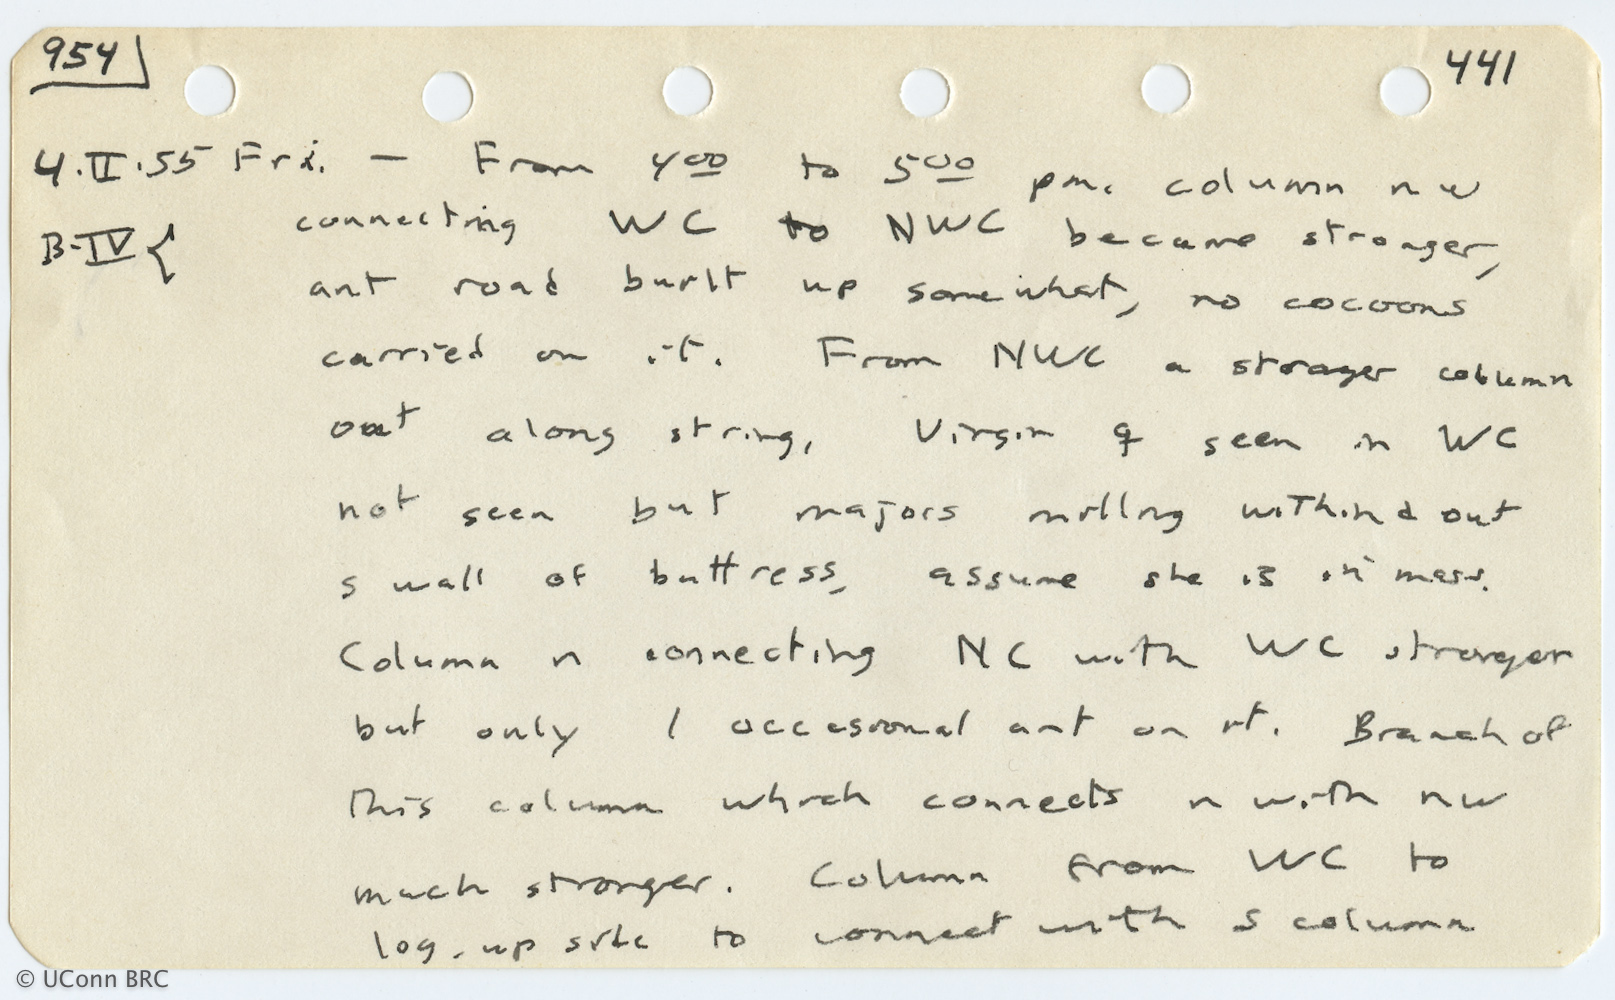 954 441
4.II.55 Fri. — From 4 00 to 5 00 pm. column nw
B-IV { connecting WC to NWC became stronger,
ant road built up somewhat, no cocoons
carried on it. From NWC a stronger column
out along string, Virgin ♀ seen in WC
not seen but majors milling within & out
s wall of buttress, assume she is in mass.
Column n connecting NC with WC stronger
but only 1 occasional ant on it. Branch of
this column which connects n with nw
much stronger. Column from WC to
log, up side to connect with s column
© UConn BRC